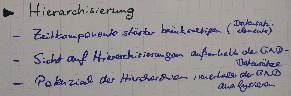 ► Hierarchisierung
- Zeitkomponente stärker berücksichtigen (Datensatz-
elemente)
- Sicht auf Hierarchisierungen außerhalb der GND-
Datensätze
- Potenzial der Hierarchien innerhalb der GND
analysieren